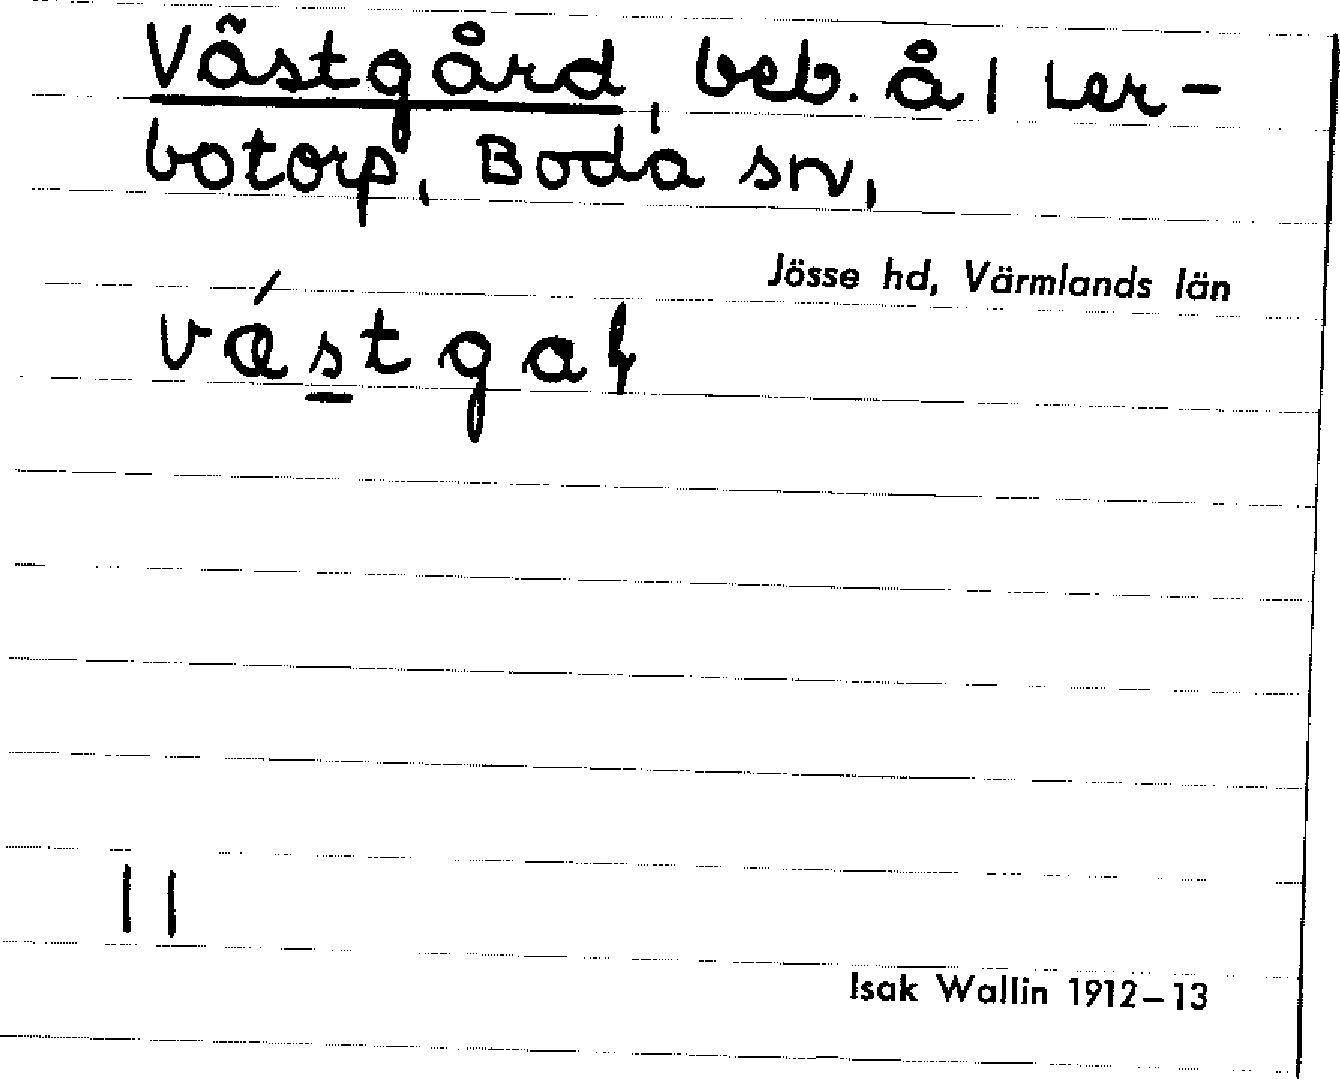 Västgård, beb. å 1 Ler-
botorp, Boda sn,
Jösse hd, Värmlands län
11
Isak Wallin 1912–13